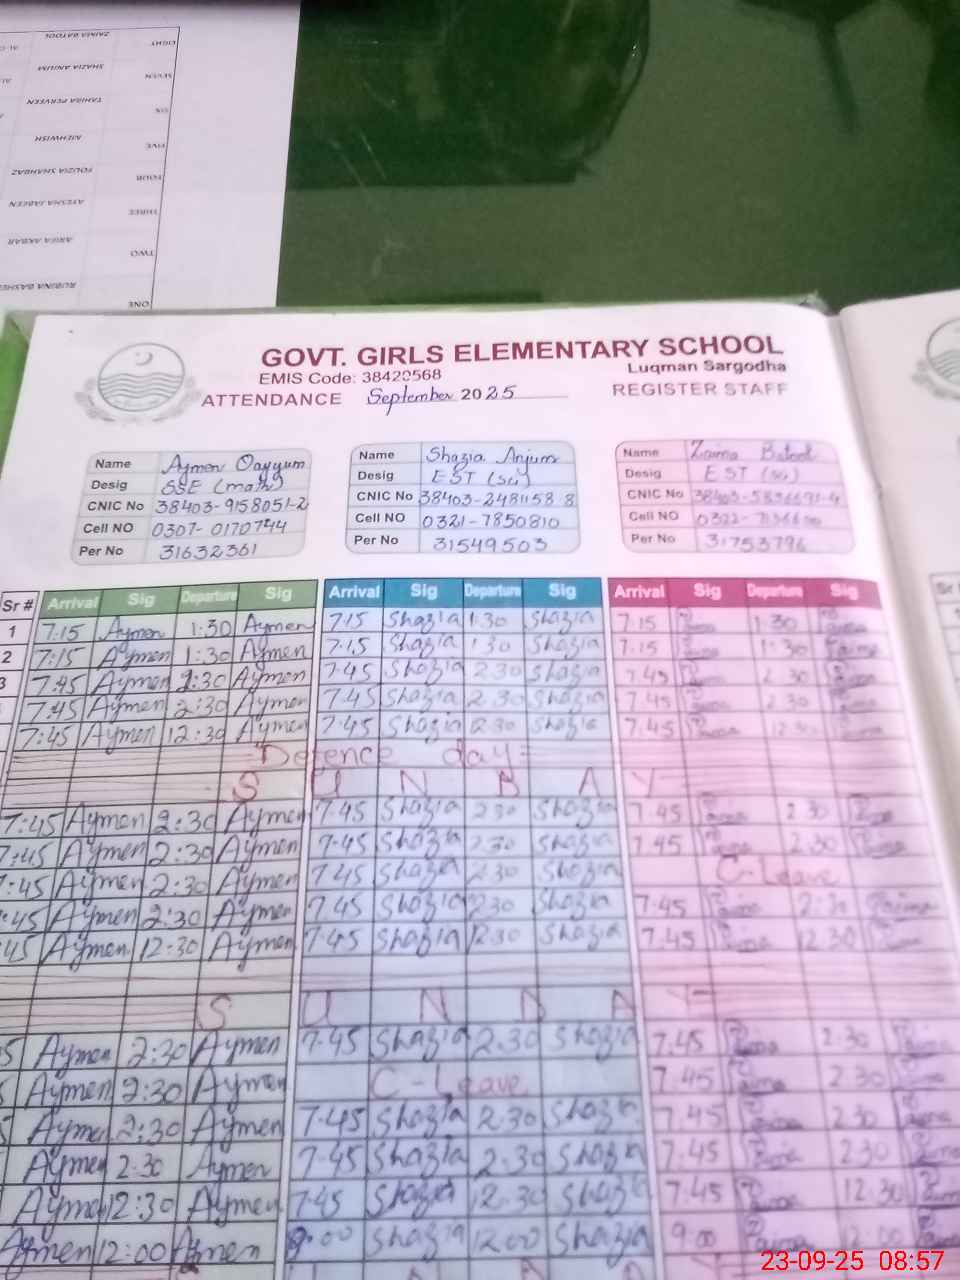 EIGHT ZAIMA BATOOL
SEVEN SHAZIA ANJUM
SIX TAHIRA PERVEEN
FIVE MEHWISH
FOUR FOUZIA SHAHBAZ
THREE AYESHA JABEEN
TWO ARIFA AKBAR
ONE RUBINA BASHEE
GOVT. GIRLS ELEMENTARY SCHOOL
EMIS Code: 38420568 Luqman Sargodha
ATTENDANCE September 2025 REGISTER STAFF
Name Aymen Qayyum Name Shazia Anjum Name Zaima Batool
Desig SSE (math) Desig EST (sci) Desig EST (sci)
CNIC No 38403-9158051-2 CNIC No 38403-2481158 8 CNIC No
Cell NO 0307-0170744 Cell NO 0321-7850810 Cell NO
Per No 31632361 Per No 31549503 Per No 31753796
Sr # Arrival Sig Departure Sig Arrival Sig Departure Sig Arrival Sig Departure Sig
1 7:15 Aymen 1:30 Aymen 7.15 Shazia 1.30 Shazia 7.15 1.30
2 7:15 Aymen 1:30 Aymen 7.15 Shazia 1.30 Shazia 7.15 1.30
3 7:45 Aymen 2:30 Aymen 7.45 Shazia 2.30 Shazia 7.45 2.30
7:45 Aymen 2:30 Aymen 7.45 Shazia 2.30 Shazia 7.45 2.30
7:45 Aymen 12:30 Aymen 7.45 Shazia 12.30 Shazia 7.45 12.30
Defence day
S U N D A Y
7:45 Aymen 2:30 Aymen 7.45 Shazia 2.30 Shazia 7.45 2.30
7:45 Aymen 2:30 Aymen 7.45 Shazia 2.30 Shazia 7.45 2.30
7:45 Aymen 2:30 Aymen 7.45 Shazia 2.30 Shazia C-Leave
:45 Aymen 2:30 Aymen 7.45 Shazia 2.30 Shazia 7.45 2.30
45 Aymen 12:30 Aymen 7.45 Shazia 12.30 Shazia 7.45 12.30
S U N D A Y
5 Aymen 2:30 Aymen 7.45 Shazia 2.30 Shazia 7.45 2.30
Aymen 2:30 Aymen C-Leave 7.45 2.30
Aymen 2:30 Aymen 7.45 Shazia 2.30 Shazia 7.45 2.30
Aymen 2.30 Aymen 7.45 Shazia 2.30 Shazia 7.45 2.30
Aymen 12:30 Aymen 7.45 Shazia 12.30 Shazia 7.45 12.30
Aymen 12:00 Aymen 9.00 Shazia 12.00 Shazia 9.00 12.00
23-09-25 08:57